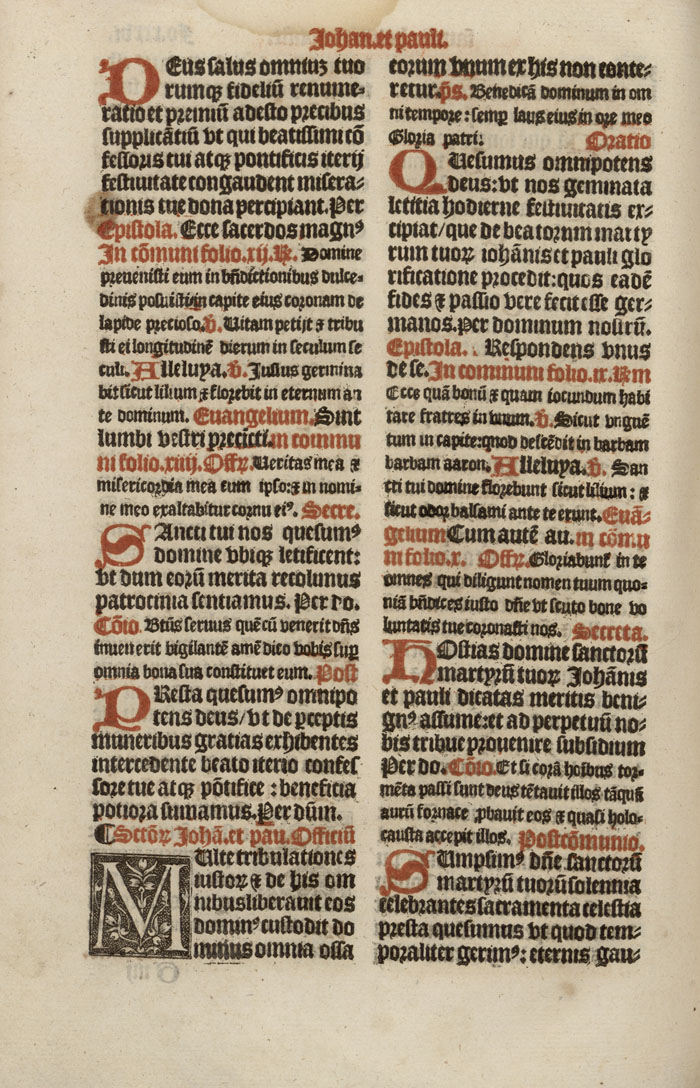 Johan. et pauli.
DEus salus omniuz tuo
rumqz fidelium renume-
ratio et premiũ adesto precibus
supplicãtiũ vt qui beatissimi cõ
fessoris tui atqz pontificis iterij
festiuitate congaudent misera-
tionis tue dona percipiant. Per
Epistola. Ecce sacerdos magnꝰ
In cõmuni folio. xij. R̃. Domine
preuenisti eum in bñdictionibus dulce-
dinis posuisti in capite eius coronam de
lapide precioso. v̄. Uitam petijt ⁊ tribu
sti ei longitudinẽ dierum in seculum se
culi. Alleluya. v̄. Justus germina
bit sicut lilium ⁊ florebit in eternum an
te dominum. Euangelium. Sint
lumbi vestri precicti. in commu
ni folio. xiiij. Offꝝ. Ueritas mea ⁊
misericordia mea cum ipso: ⁊ in nomi-
ne meo exaltabitur cornu eiꝰ. Secre.
SAncti tui nos quesumꝰ
domine vbiqz letificent:
vt dum eorũ merita recolimus
patrocinia sentiamus. Per do.
Cõio. Btũs seruus quẽ cũ venerit dñs
inuenerit vigilantẽ amẽ dico vobis suꝑ
omnia bona sua constituet eum. Post
PResta quesumꝰ omnipo
tens deus/ vt de ꝑceptis
muneribus gratias exhibentes
intercedente beato iterio confes
sore tue atqz põtifice: beneficia
potiora sumamus. Per dũm.
¶ Sctõꝝ Johã. et pau. Officiũ
MUlte tribulationes
iustoꝝ ⁊ de his om
nibus liberauit eos
dominꝰ custodit do
minus omnia ossa
eorum vnum ex his non conte-
retur. p̃s. Benedicã dominum in om
ni tempore: semꝑ laus eius in ore meo
Gloria patri: Oratio
QUesumus omnipotens
deus: vt nos geminata
letitia hodierne festiuitatis ex-
cipiat/ que de beatorum marty
rum tuoꝝ iohãnis et pauli glo
rificatione procedit: quos eadẽ
fides ⁊ passio vere fecit esse ger-
manos. Per dominum nostrũ.
Epistola. Respondens vnus
de se. In communi folio. ix. R̃m
Ecce quã bonũ ⁊ quam iocundum habi
tare fratres in vnum. v̄. Sicut vnguẽ
tum in capite: quod descẽdit in barbam
barbam aaron. Alleluya. v̄. San
cti tui domine florebunt sicut lilium: ⁊
sicut odor balsami ante te erunt. Euã-
gelium Cum autẽ au. in cõmu
ni folio. x. Offꝝ. Gloriabunt̃ in te
omnes qui diligunt nomen tuum quo-
niã bñdices iusto dñe vt scuto bone vo
luntatis tue coronasti nos. Secreta.
HOstias domine sanctorũ
martyrũ tuoꝝ Johãnis
et pauli dicatas meritis beni-
gnꝰ assume: et ad perpetuũ no-
bis tribue prouenire subsidium
Per do. Cõio. Et si corã hoĩbus tor-
mẽta passi sunt deus tẽtauit illos tãqũ
aurũ fornace ꝓbauit eos ⁊ quasi holo-
causta accepit illos. Postcõmunio.
SUmpsimꝰ dñe sanctorũ
martyrũ tuorũ solennia
celebrantes sacramenta celestia
presta quesumus vt quod tem-
poraliter gerimꝰ: eternis gau-